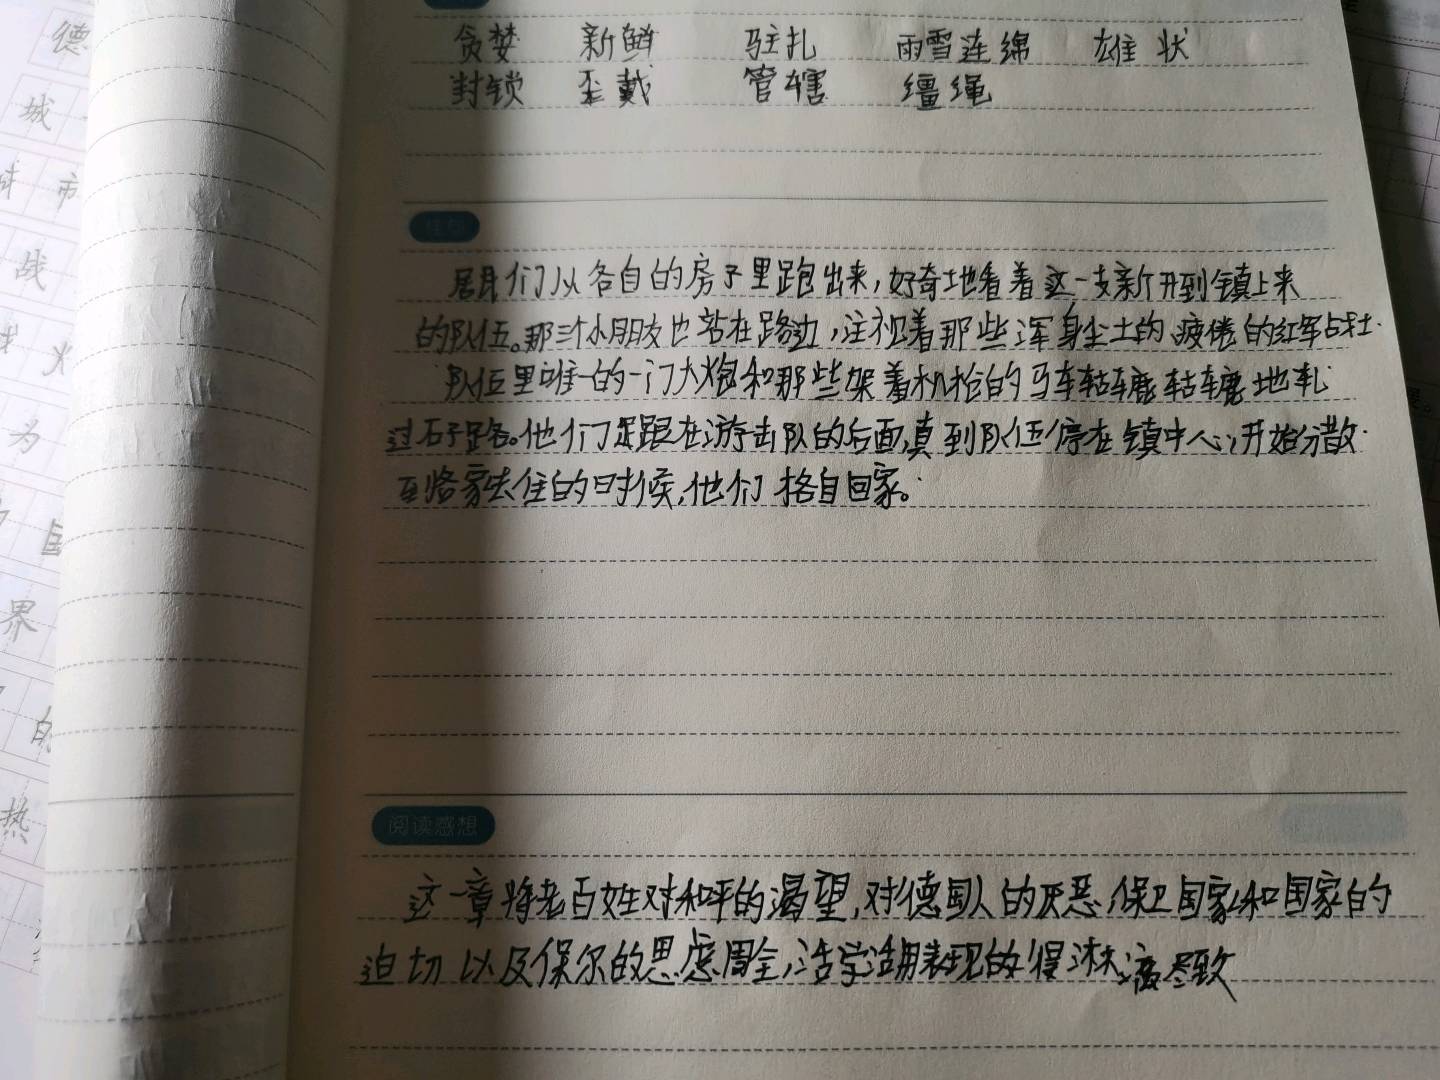 贪婪 新鲜 驻扎 雨雪连绵 雄状
封锁 歪戴 管辖 缰绳
佳句
居民们从各自的房子里跑出来,好奇地看着这一支新开到镇上来
的队伍。那三个小朋友也站在路边,注视着那些浑身尘土的疲倦的红军战士.
队伍里唯一的一门大炮和那些架着机枪的马车轱辘轱辘地轧
过石子路。他们是跟在游击队的后面,真到队伍停在镇中心,开始分散
到各家去住的时候,他们格自回家。
阅读感想
这一章将老百姓对和平的渴望,对德国人的厌恶,保卫国家和国家的
迫切以及保尔的思虑周全,活学活用表现的慢淋漓尽致
德
城
市
战
火
为
国
界
的
热